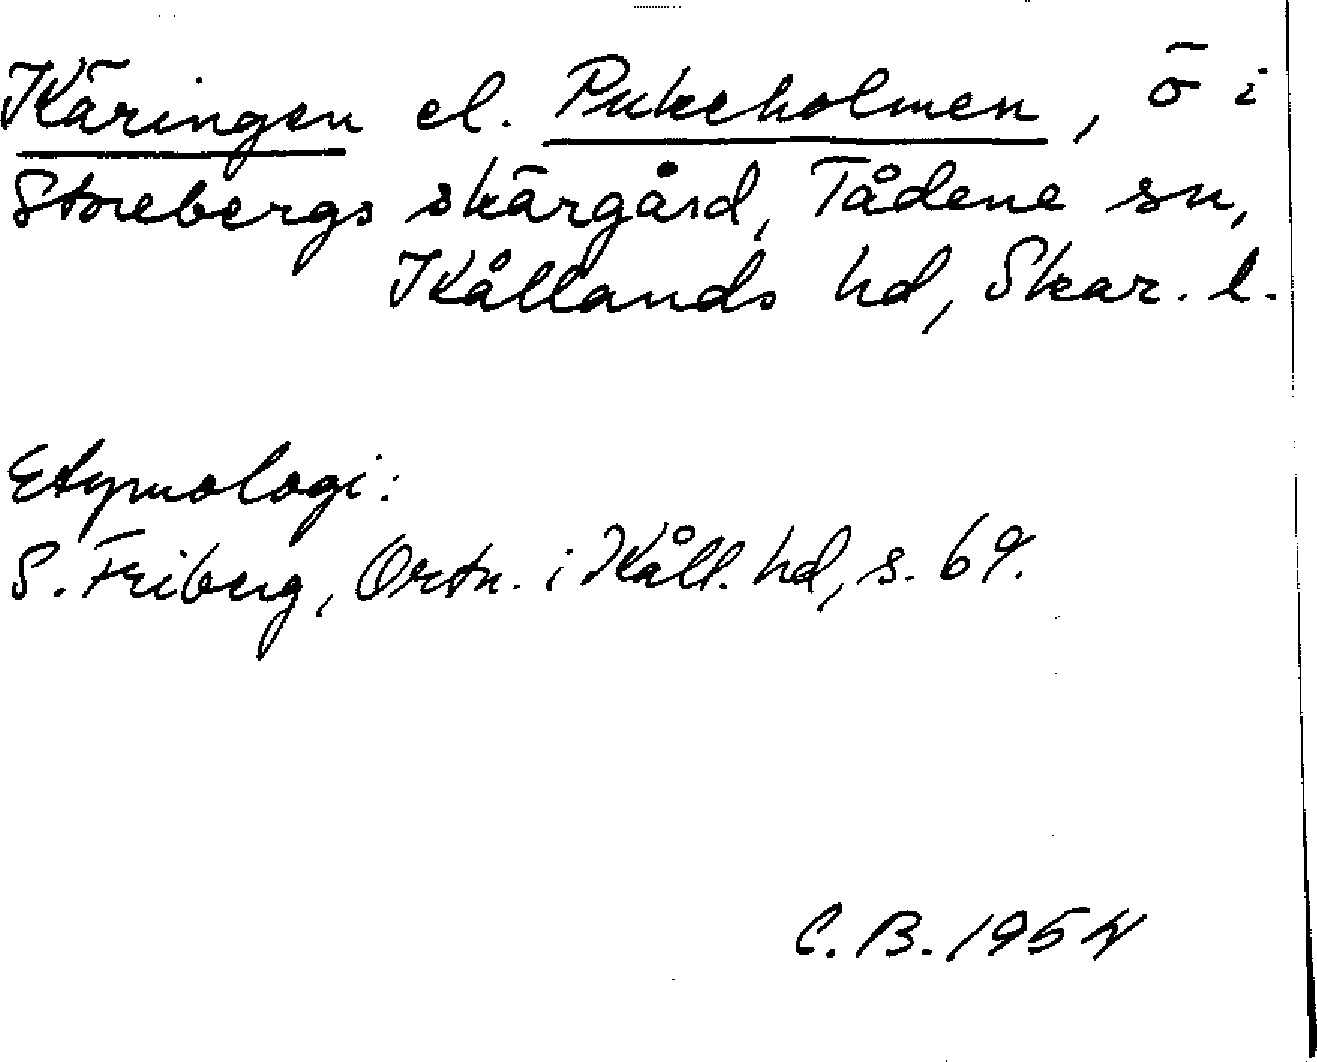 Käringen el. Pukeholmen, ö i
Storebergs skärgård, Tådene sn,
Kållands hd, Skar. l.
Etymologi:
S. Friberg, Ortn. i Kåll. hd, s. 69.
C. B. 1954